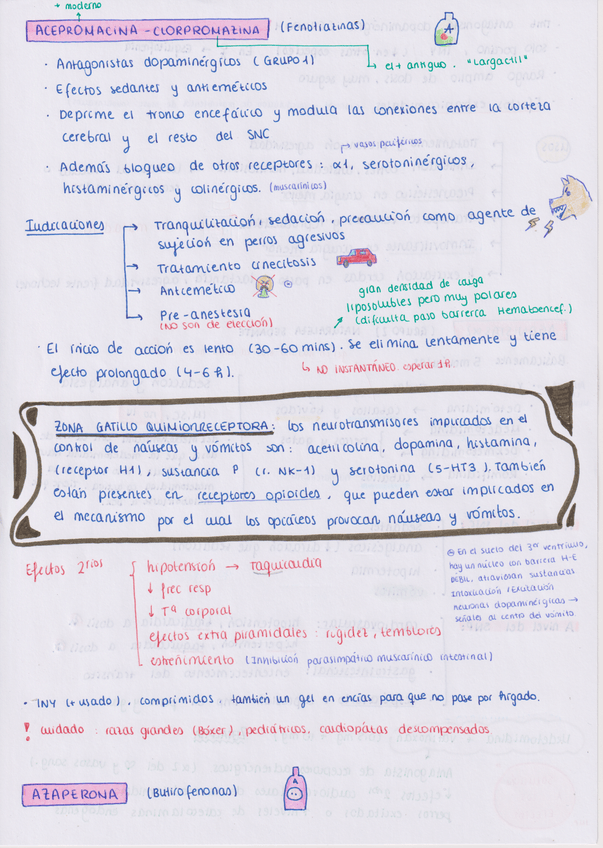 + moderno
ACEPROMACINA - CLORPROMAZINA (Fenotiazinas)
A
el + antiguo. "Largactil"
· Antagonistas dopaminérgicos (GRUPO 1)
· Efectos sedantes y antieméticos
· Deprime el tronco encefálico y modula las conexiones entre la corteza
cerebral y el resto del SNC
vasos periféricos
· Además bloqueo de otros receptores: α1, serotoninérgicos,
histaminérgicos y colinérgicos. (muscarínicos)
Indicaciones
Tranquilización, sedación, precaución como agente de
sujeción en perros agresivos
Tratamiento cinecitosis
Antiemético
Pre-anestesia
(NO SON de elección)
gran densidad de carga
liposolubles pero muy polares
(dificulta paso barrera Hematoencef.)
· El inicio de acción es lento (30-60 mins). Se elimina lentamente y tiene
efecto prolongado (4-6 h).
NO INSTANTÁNEO. esperar 1h.
ZONA GATILLO QUIMIORRECEPTORA: los neurotransmisores implicados en el
control de náuseas y vómitos son: acetilcolina, dopamina, histamina,
(receptor H1), sustancia P (r. NK-1) y serotonina (5-HT3). También
están presentes en receptores opioides, que pueden estar implicados en
el mecanismo por el cual los opiáceos provocan náuseas y vómitos.
Efectos 2rios
hipotensión → taquicardia
↓ frec resp
↓ Tª corporal
efectos extra piramidales: rigidez, temblores
estreñimiento (Inhibición parasimpático muscarínico intestinal)
En el suelo del 3er ventrículo,
hay un núcleo con barrera H-E
DEBIL, atraviesan sustancias
Intoxicación
neuronas dopaminérgicas →
señala al centro del vómito
· INY (+ usado). comprimidos. también un gel en encías para que no pase por hígado.
! cuidado: razas grandes (Bóxer), pediátricos, cardiópatas descompensados
AZAPERONA (Butirofenonas)
A